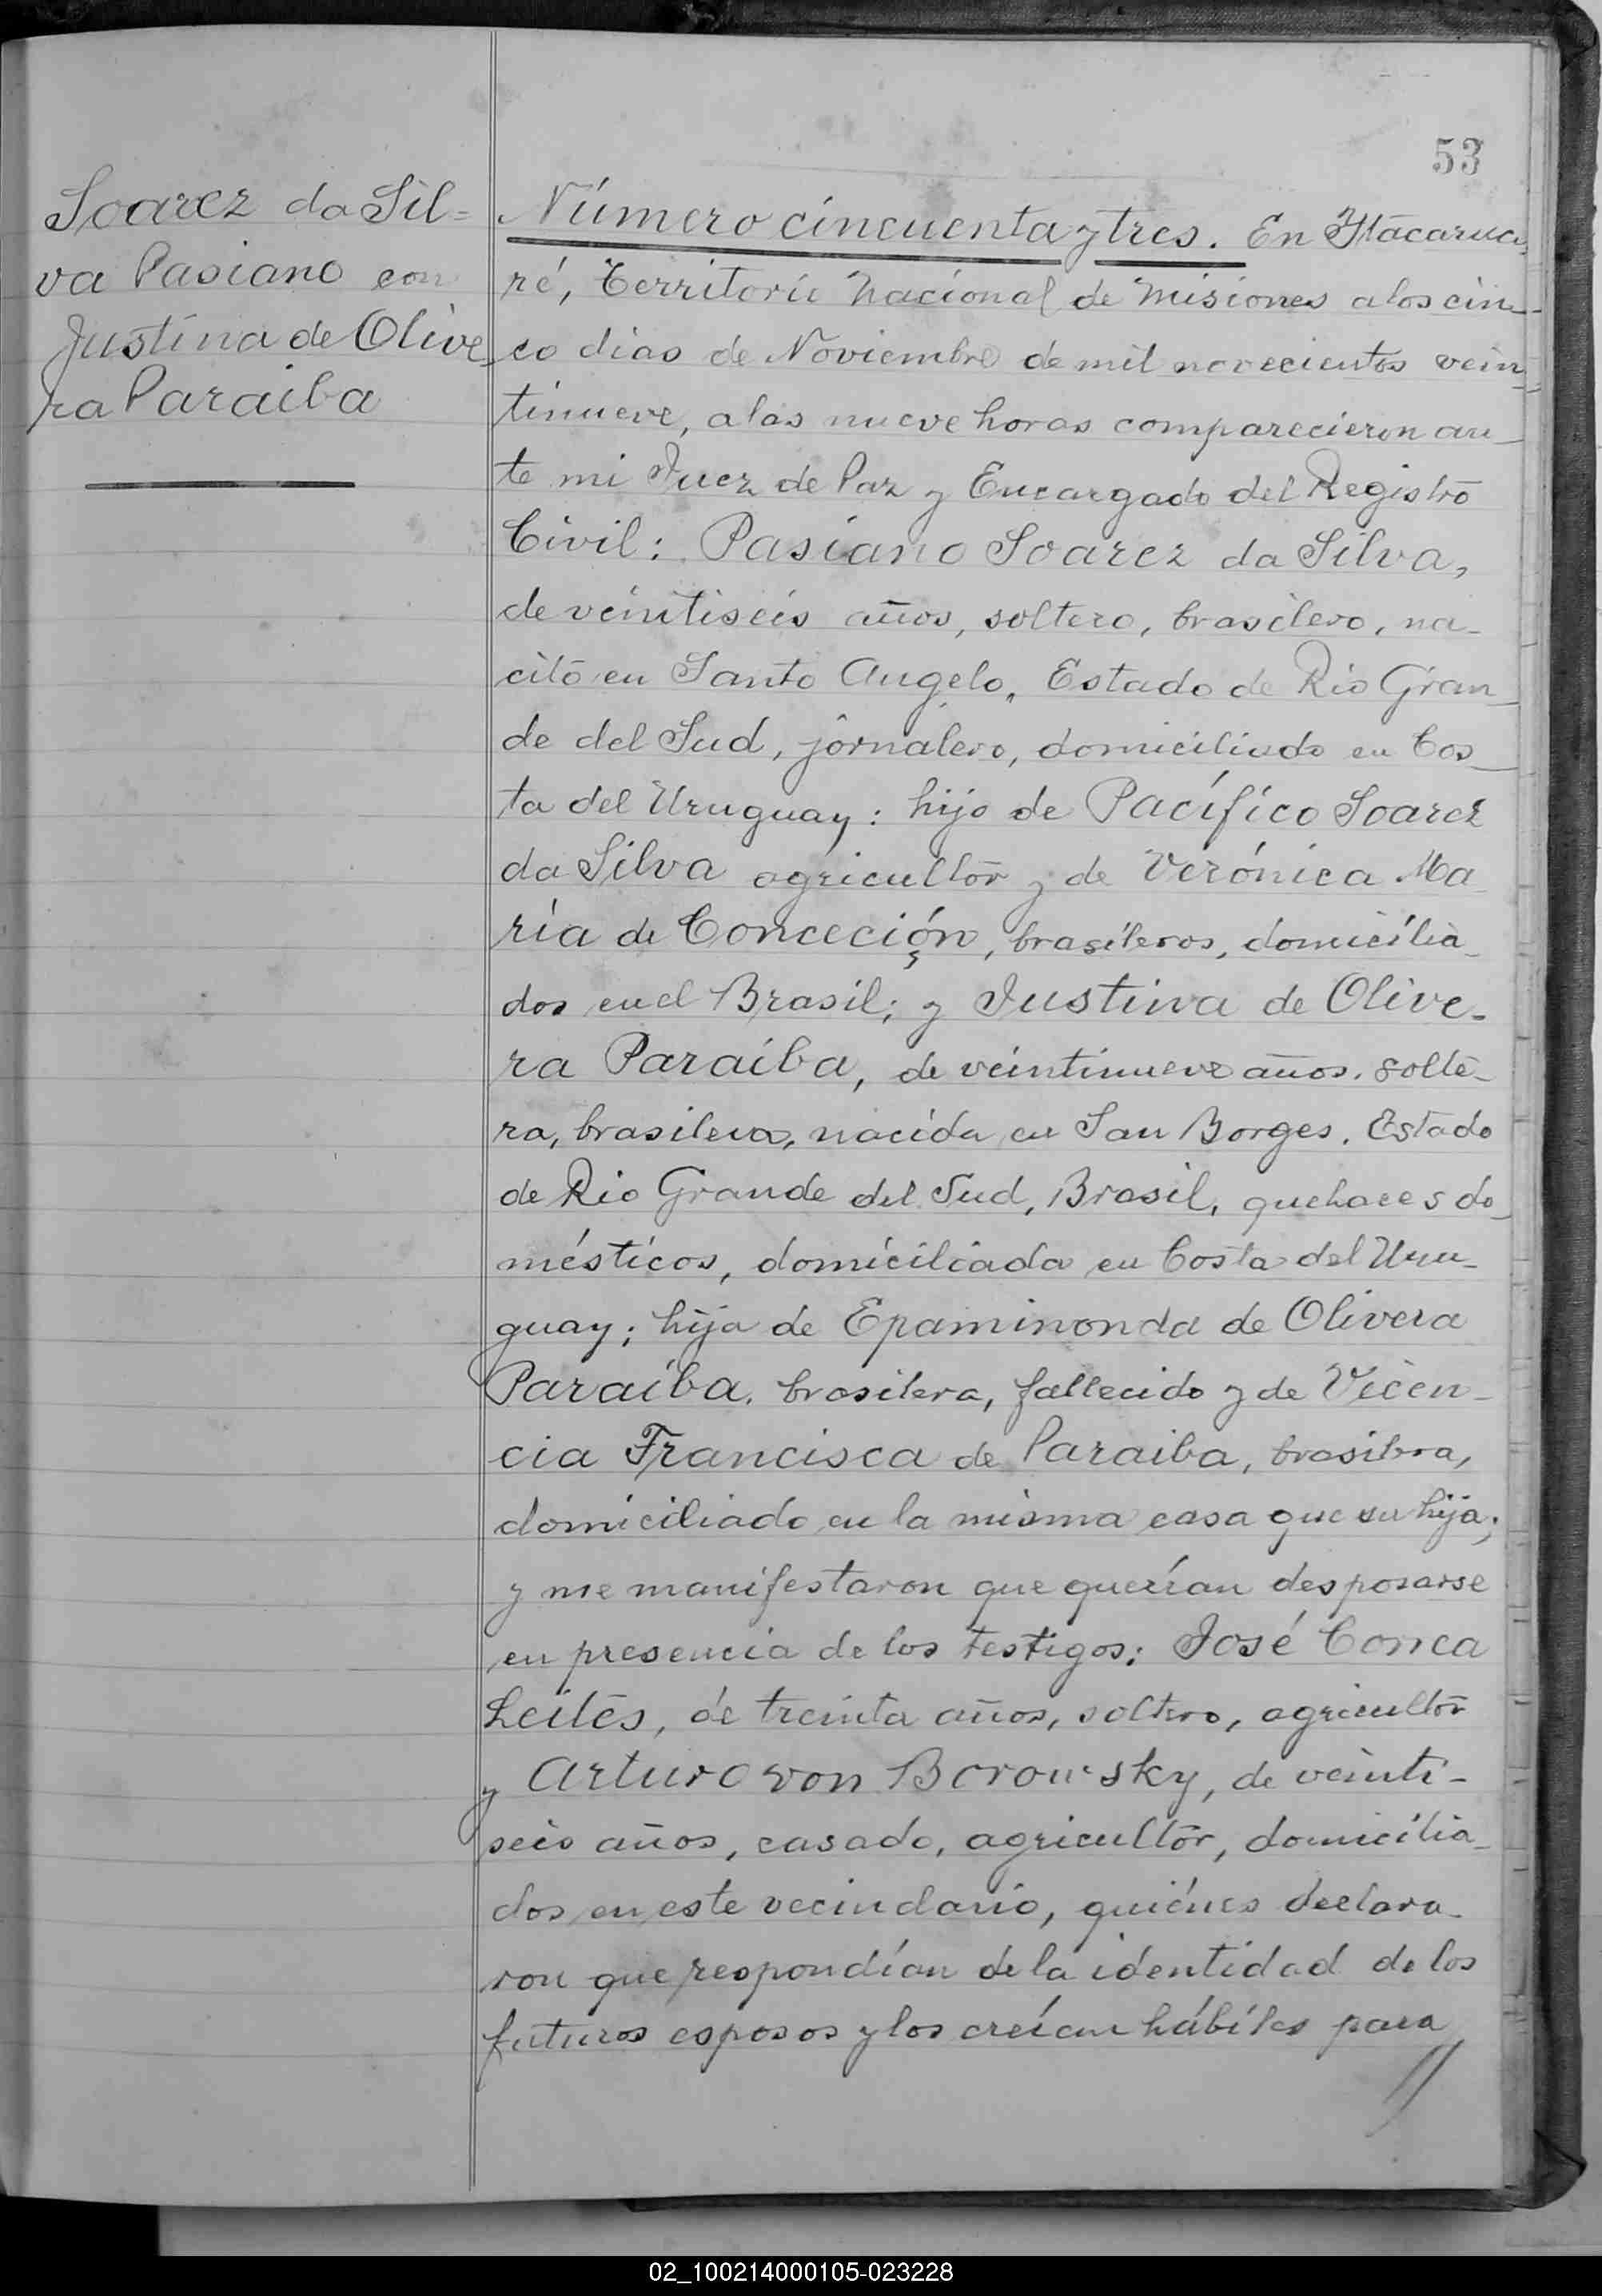 53
Soarez da Sil=
va Pasiano con
Justina de Olive
ra Paraiba
Número cincuenta y tres. En Itacarua
ré, Territorio Nacional de Misiones a los cin
co dias de Noviembre de mil novecientos vein
tinueve, a las nueve horas comparecieron an
te mi Juez de Paz y Encargado del Registro
Civil: Pasiano Soarez da Silva,
de veintiseis años, soltero, brasilero, na-
cito en Santo Angelo, Estado de Rio Gran
de del Sud, jornalero, domiciliado en Cos
ta del Uruguay: hijo de Pacífico Soarez
da Silva agricultor y de Verónica Ma
ría de Conceción, brasileros, domicilia
dos en el Brasil; y Justina de Olive-
ra Paraiba, de veintinueve años, solte-
ra, brasilera, nacida en San Borges, Estado
de Rio Grande del Sud, Brasil, quehaces do
mésticos, domiciliada en Costa del Uru-
guay; hija de Epaminonda de Olivera
Paraiba, brasilera, fallecido y de Vicen-
cia Francisca de Paraiba, brasilera,
domiciliado en la misma casa que su hija;
y me manifestaron que querían desposarse
en presencia de los testigos: José Conca
Leites, de treinta años, soltero, agricultor
y Arturo von Borowsky, de veinti-
seis años, casado, agricultor, domicilia-
dos en este vecindario, quiénes declara-
ron que respondían de la identidad de los
futuros esposos y los creían hábiles para
//
02_100214000105-023228